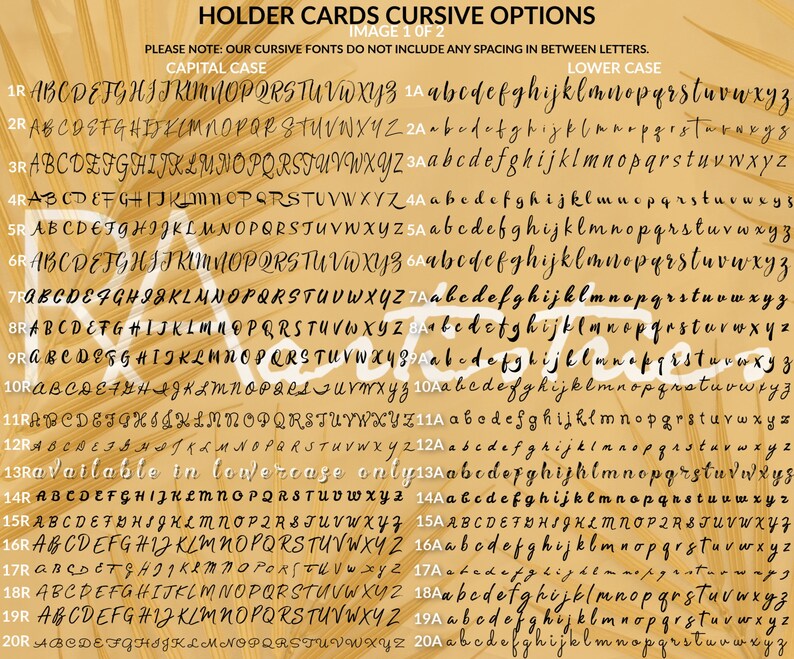 HOLDER CARDS CURSIVE OPTIONS
IMAGE 1 OF 2
PLEASE NOTE: OUR CURSIVE FONTS DO NOT INCLUDE ANY SPACING IN BETWEEN LETTERS.
CAPITAL CASE LOWER CASE
1R ABCDEFGHIJKLMNOPQRSTUVWXYZ 1A abcdefghijklmnopqrstuvwxyz
2R ABCDEFGHIJKLMNOPQRSTUVWXYZ 2A abcdefghijklmnopqrstuvwxyz
3R ABCDEFGHIJKLMNOPQRSTUVWXYZ 3A abcdefghijklmnopqrstuvwxyz
4R ABCDEFGHIJKLMNOPQRSTUVWXYZ 4A abcdefghijklmnopqrstuvwxyz
5R ABCDEFGHIJKLMNOPQRSTUVWXYZ 5A abcdefghijklmnopqrstuvwxyz
6R ABCDEFGHIJKLMNOPQRSTUVWXYZ 6A abcdefghijklmnopqrstuvwxyz
7R ABCDEFGHIJKLMNOPQRSTUVWXYZ 7A abcdefghijklmnopqrstuvwxyz
8R ABCDEFGHIJKLMNOPQRSTUVWXYZ 8A abcdefghijklmnopqrstuvwxyz
9R ABCDEFGHIJKLMNOPQRSTUVWXYZ 9A abcdefghijklmnopqrstuvwxyz
10R ABCDEFGHIJKLMNOPQRSTUVWXYZ 10A abcdefghijklmnopqrstuvwxyz
11R ABCDEFGHIJKLMNOPQRSTUVWXYZ 11A abcdefghijklmnopqrstuvwxyz
12R ABCDEFGHIJKLMNOPQRSTUVWXYZ 12A abcdefghijklmnopqrstuvwxyz
13R available in lowercase only 13A abcdefghijklmnopqrstuvwxyz
14R ABCDEFGHIJKLMNOPQRSTUVWXYZ 14A abcdefghijklmnopqrstuvwxyz
15R ABCDEFGHIJKLMNOPQRSTUVWXYZ 15A ABCDEFGHIJKLMNOPQRSTUVWXYZ
16R ABCDEFGHIJKLMNOPQRSTUVWXYZ 16A abcdefghijklmnopqrstuvwxyz
17R ABCDEFGHIJKLMNOPQRSTUVWXYZ 17A abcdefghijklmnopqrstuvwxyz
18R ABCDEFGHIJKLMNOPQRSTUVWXYZ 18A abcdefghijklmnopqrstuvwxyz
19R ABCDEFGHIJKLMNOPQRSTUVWXYZ 19A abcdefghijklmnopqrstuvwxyz
20R ABCDEFGHIJKLMNOPQRSTUVWXYZ 20A abcdefghijklmnopqrstuvwxyz